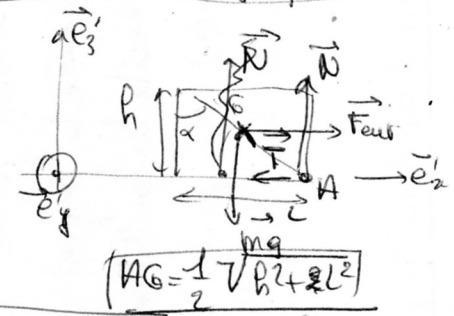 e⃗'₃
N⃗
h
α
G
F⃗eur
T⃗
A
e⃗'x
e⃗'y
L
mg⃗
AG = 1/2 √h²+L²